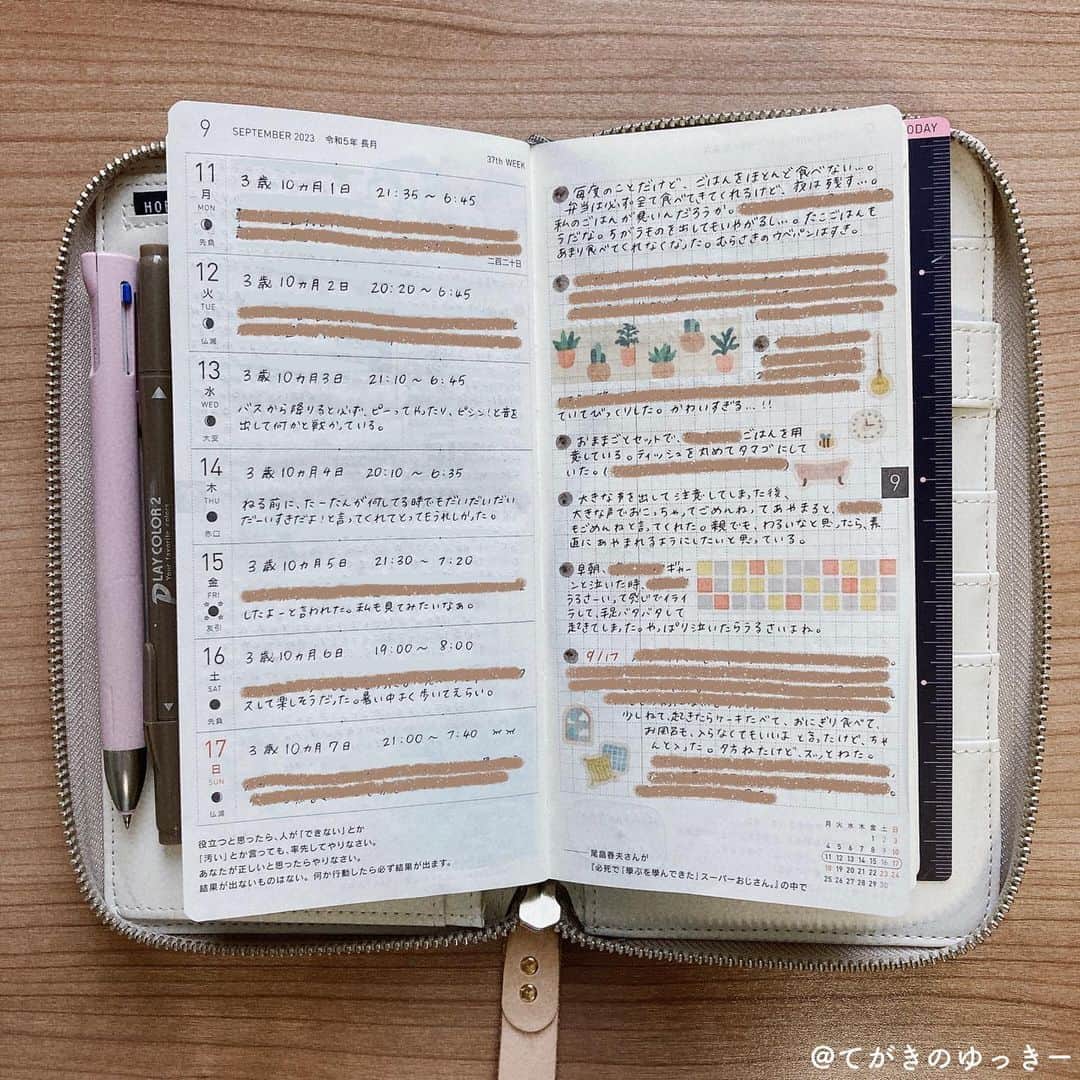 9 SEPTEMBER 2023 令和5年 長月
37th WEEK
11 月 MON 先負
3歳10カ月1日 21:35〜6:45
二百二十日
12 火 TUE 仏滅
3歳10カ月2日 20:20〜6:45
13 水 WED 大安
3歳10カ月3日 21:10〜6:45
バスから降りると必ず、ピーってやったり、ピシン!と音を
出して何かと戦かっている。
14 木 THU 赤口
3歳10カ月4日 20:10〜6:35
ねる前に、たーたんが何してる時でもだいだいだい
だーいすきだよ!と言ってくれてとってもうれしかった。
15 金 FRI 友引
3歳10カ月5日 21:30〜7:20
したよーと言われた。私も見てみたいなぁ。
16 土 SAT 先負
3歳10カ月6日 19:00〜8:00
スして楽しそうだった。暑い中よく歩いてえらい。
17 日 SUN 仏滅
3歳10カ月7日 21:00〜7:40
役立つと思ったら、人が「できない」とか
「汚い」とか言っても、率先してやりなさい。
あなたが正しいと思ったらやりなさい。
結果が出ないものはない。何か行動したら必ず結果が出ます。
毎度のことだけど、ごはんをほとんど食べない…。
弁当は必ず全て食べてきてくれるけど、夜は残す…。
私のごはんが悪いんだろうか。
うだな。ちがうものを出してもいやがるし…。たこごはんも
あまり食べてくれなくなった。むらさきのウベパンはすぎ。
ていてびっくりした。かわいすぎる…!!
おままごとセットで、 ごはんを用
意している。ティッシュを丸めてタマゴにして
いた。(
大きな声を出して注意してしまった後、
大きな声でおこっちゃってごめんねってあやまると、
もごめんねと言ってくれた。親でも、わるいなと思ったら、素
直にあやまれるようにしたいと思っている。
早朝、 ギャー
ンと泣いた時、
うるさーいって感じでイライ
ラして、手足バタバタして
起きてしまった。やっぱり泣いたらうるさいよね。
9/17
少しねて、起きたらケーキたべて、おにぎり食べて、
お風呂も、入らなくてもいいよと言ったけど、ちゃ
んと入った。夕方ねたけど、スッとねた。
9
尾畠春夫さんが
『必死で「學ぶを學んできた」スーパーおじさん。』の中で
月 火 水 木 金 土 日
1 2 3
4 5 6 7 8 9 10
11 12 13 14 15 16 17
18 19 20 21 22 23 24
25 26 27 28 29 30
TODAY
HOB
PLAY COLOR 2
@てがきのゆっきー